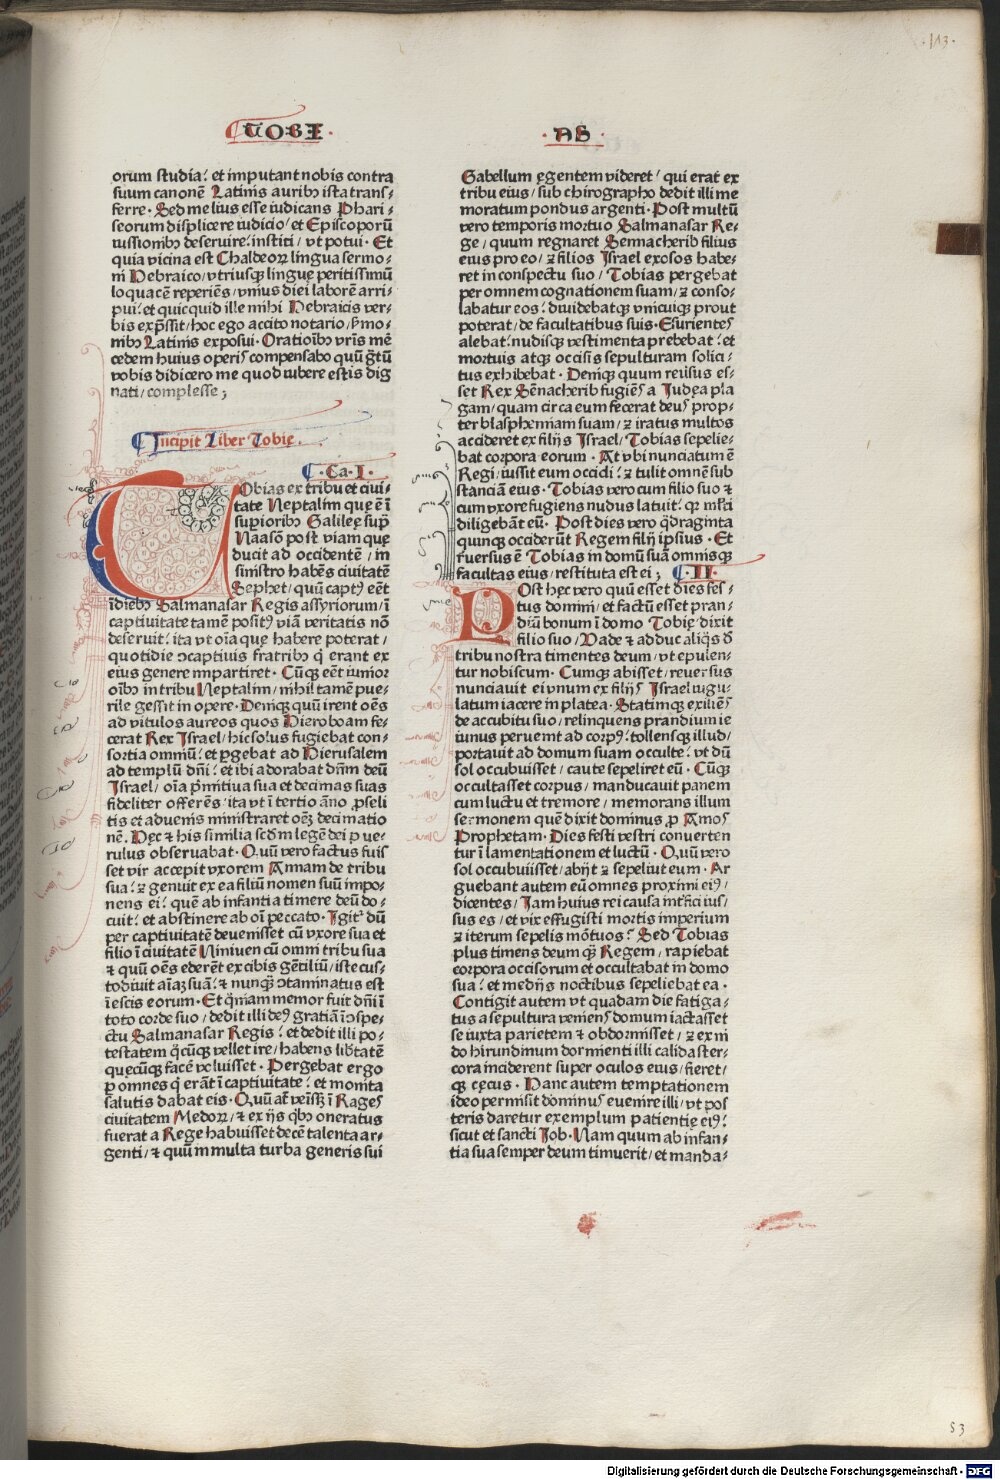 ·113·
TOBI
·AS·
orum studia: et imputant nobis contra
suum canonē Latinis auribꝫ ista trans⸗
ferre· Sed melius esse iudicans Phari⸗
seorum displicere iudicio/ et Episcoporū
iussionibꝫ deseruire: institi/ vt potui· Et
quia vicina est Chaldeoꝝ lingua sermo⸗
ni Hebraico/ vtriusqꝫ linguę peritissimū
loquacē reperiēs/ vnius diei laborē arri⸗
pui: et quicquid ille mihi Hebraicis ver⸗
bis exp̄ssit/ hoc ego accito notario/ s̄mo⸗
nibꝫ Latinis exposui· Orationibꝫ vr̄is mē
cedem huius operis compensabo quū g̃tū
vobis didicero me quod iubere estis dig
nati/ complesse;
Incipit Liber Tobię.
·Ca·I·
TObias ex tribu et ciui⸗
tate Neptalim quę ē ī
supioribꝫ Galileę sup̄
Naasō post viam quę
ducit ad occidentē/ in
sinistro habēs ciuitatē
Sephet/ quū captꝰ eēt
īdiebꝫ Salmanasar Regis assyriorum/ ī
captiuitate tamē positꝰ viā veritatis nō
deseruit: ita vt oīa que habere poterat/
quotidie ↄcaptiuis fratribꝫ q̄ erant ex
eius genere impartiret· Cūqꝫ eēt iunior
oībꝫ in tribu Neptalim/ nihil tamē pue⸗
rile gessit in opere· Deniqꝫ quū irent oēs
ad vitulos aureos quos Hieroboam fe⸗
cerat Rex Israel/ hic solus fugiebat con⸗
sortia omniū: et ꝑgebat ad Hierusalem
ad templū dn̄i: et ibi adorabat dn̄m deū
Israel/ oīa p̄mitiua sua et decimas suas
fideliter offerēs: ita vt ī tertio āno ꝓseli
tis et aduenis ministraret oēꝫ decimatio
nē. Hęc ⁊ his similia scd̄m legē dei pue⸗
rulus obseruabat· Quū vero factus fuis
set vir accepit vxorem Annam de tribu
sua: ⁊ genuit ex ea filiū nomen suū impo⸗
nens ei: quē ab infantia timere deū do⸗
cuit: et abstinere ab oī peccato· Igit᷑ dū
per captiuitatē deuenisset cū vxore sua et
filio ī ciuitatē Niniuen cū omni tribu sua
⁊ quū oēs ederēt ex cibis gētiliū/ iste cus⸗
todiuit aīaꝫ suā: ⁊ nunqꝫ ↄtaminatus est
ī escis eorum· Et q̄niam memor fuit dn̄i ī
toto corde suo/ dedit illi deꝰ gratiā īↄspe⸗
ctu Salmanasar Regis: et dedit illi po⸗
testatem q̄cūqꝫ vellet ire/ habens lib̄tatē
quęcūqꝫ facē voluisset· Pergebat ergo
ꝑ omnes q̄ erāt ī captiuitate: et monita
salutis dabat eis· Quū at̄ venīsꝫ ī Rages
ciuitatem Medoꝝ/ ⁊ ex ijs qb̄ꝫ oneratus
fuerat a Rege habuisset decē talenta ar⸗
genti/ ⁊ quū in multa turba generis sui
Gabellum ęgentem videret/ qui erat ex
tribu eius/ sub chirographo dedit illi me
moratum pondus argenti· Post multū
vero temporis mortuo Salmanasar Re⸗
ge/ quum regnaret Sennacherib filius
eius pro eo/ ⁊ filios Israel exosos habe⸗
ret in conspectu suo/ Tobias pergebat
per omnem cognationem suam/ ⁊ conso⸗
labatur eos: diuidebatqꝫ vnicuiqꝫ prout
poterat/ de facultatibus suis· Esurientes
alebat: nudisqꝫ vestimenta prebebat: et
mortuis atqꝫ occisis sepulturam solici⸗
tus exhibebat· Deniqꝫ quum reūsus es⸗
set Rex Sēnacherib fugiēs a Iudęa pla
gam/ quam circa eum fecerat deus prop⸗
ter blasphemiam suam/ ⁊ iratus multos
accideret ex filijs Israel/ Tobias sepelie⸗
bat corpora eorum· At vbi nunciatum ē
Regi/ iussit eum occidi: ⁊ tulit omnē sub
stanciā eius· Tobias vero cum filio suo ⁊
cum vxore fugiens nudus latuit: qꝫ ml̄ti
diligebāt eū· Post dies vero q̄draginta
quinqꝫ occiderūt Regem filij ipsius· Et
r̄uersus ē Tobias in domū suā omnisqꝫ
facultas eius/ restituta est ei; ·II·
POst hęc vero quū esset dies fes⸗
tus domini/ et factū esset pran⸗
diū bonum ī domo Tobię dixit
filio suo/ Vade ⁊ adduc aliq̄s d̄
tribu nostra timentes deum/ vt epulen⸗
tur nobiscum· Cumqꝫ abisset/ reuersus
nunciauit ei vnum ex filijs Israel iugu⸗
latum iacere in platea· Statimqꝫ exiliēs
de accubitu suo/ relinquens prandium ie
iunus peruenit ad corpꝰ: tollensqꝫ illud/
portauit ad domum suam occulte: vt dū
sol occubuisset/ caute sepeliret eū· Cūqꝫ
occultasset corpus/ manducauit panem
cum luctu et tremore/ memorans illum
sermonem quē dixit dominus ꝑ Amos
Prophetam· Dies festi vestri conuerten
tur ī lamentationem et luctū· Quū vero
sol occubuiisset/ abijt ⁊ sepeliuit eum· Ar
guebant autem eū omnes proximi eiꝰ/
dicentes/ Iam huius rei causa inťfici ius⸗
sus es/ et vix effugisti mortis imperium
⁊ iterum sepelis mōtuos: Sed Tobias
plus timens deum qꝫ Regem/ rapiebat
corpora occisorum et occultabat in domo
sua: et medijs noctibus sepeliebat ea·
Contigit autem vt quadam die fatiga⸗
tus a sepultura veniens domum iactasset
se iuxta parietem ⁊ obdormisset/ ⁊ ex ni
do hirundinum dormienti illi calida ster⸗
cora inciderent super oculos eius/ fieret/
qꝫ cęcus· Hanc autem temptationem
ideo permisit dominus euenire illi/ vt pos
teris daretur exemplum patientię eiꝰ:
sicut et sancti Iob· Nam quum ab infan⸗
tia sua semper deum timuerit/ et manda⸗
53
Digitalisierung gefördert durch die Deutsche Forschungsgemeinschaft - DFG